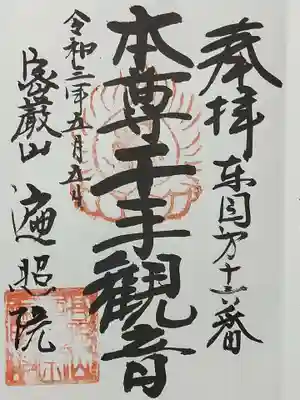 奉拝
東国第十二番
本尊千手観音
令和三年五月五日
密厳山
遍照院